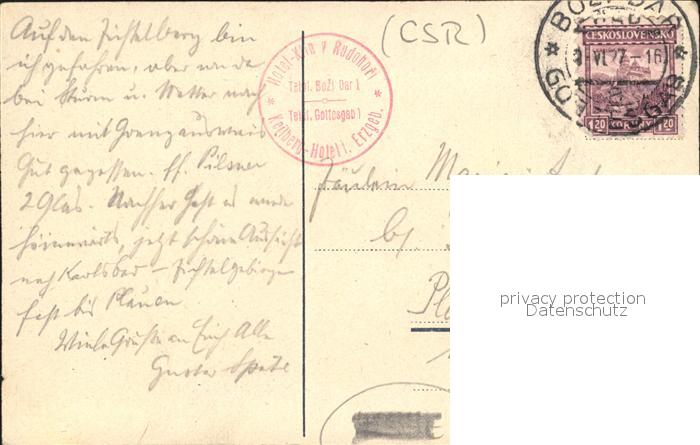 Auf den Fichtelberg bin
ich gefahren, aber von da
bei Sturm u. Wetter nach
hier mit Grenzausweis
Gut gegessen. ff. Pilsner
2 Glas. Nachher geht es wieder
heimwärts, jetzt schöne Aussicht
nach Karlsbad – Fichtelgebirge
fast bis Plauen
Viele Grüße an Euch Alle
Gustav
Hotel-Klín v Rudohoří
Telef. Boží Dar 1
Telef. Gottesgab 1
Keilberg-Hotel i. Erzgeb.
(CSR)
BOŽÍ DAR
VI. 27 - 16
ČESKOSLOVENSKO
1.20 KORUNY 1.20
Fräulein
b/.
Pl
privacy protection
Datenschutz